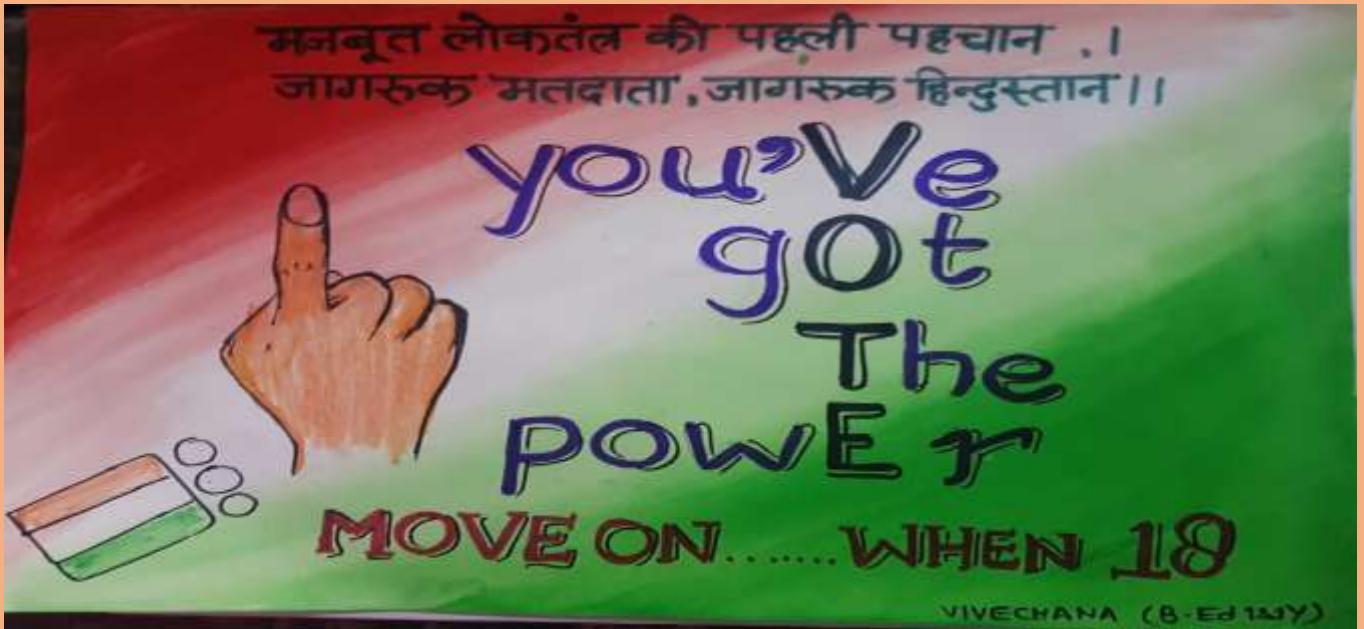 मजबूत लोकतंत्र की पहली पहचान .।
जागरुक मतदाता, जागरुक हिन्दुस्तान।।
you'Ve
gOt
The
powEr
MOVE ON.......WHEN 18
VIVECHANA (B-Ed 1stY)